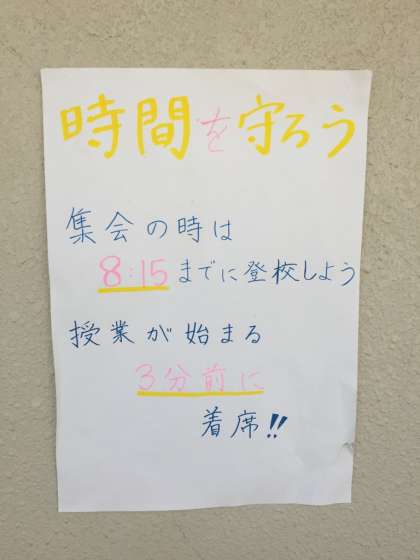 時間を守ろう
集会の時は
8:15までに登校しよう
授業が始まる
3分前に
着席!!